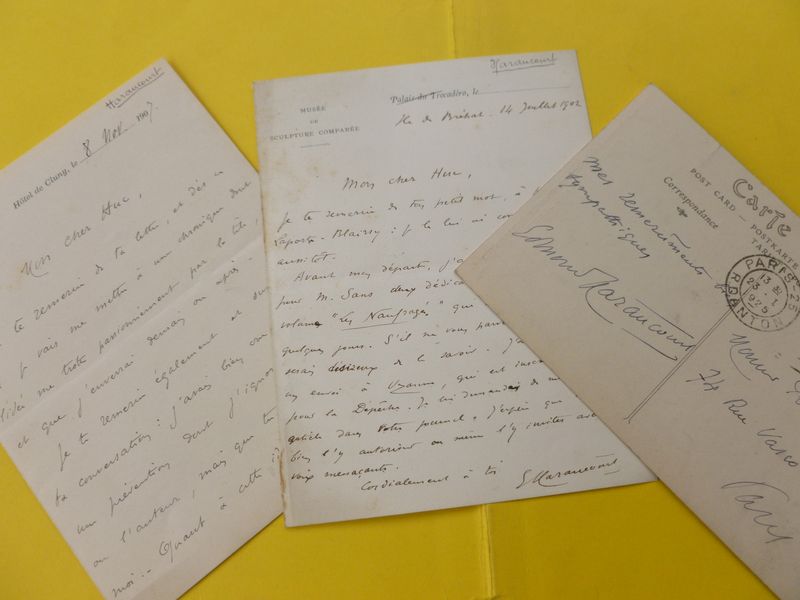 Haraucourt
Hôtel de Cluny, le 8 Nov 1907.
Mon cher Huc,
te remercie de ta lettre, et dès
je vais me mettre à une chronique dont
l'idée me trotte passionnément par la tête,
et que j'enverrai demain ou après-
Je te remercie également et
ta conversation : j'avais bien
un prévention dont j'ignor
ou l'auteur, mais que tu
moi :- Quant à cette
Haraucourt
MUSÉE
DE
SCULPTURE COMPARÉE
Palais du Trocadéro, le
Ile de Bréhat. 14 Juillet 1902
Mon cher Huc,
Je te remercie de ton petit mot, à
Laporte-Blairsy : je le lui ai
aussitôt.
Avant mon départ, j'a
pour M. Sans deux dédica
volume "Les Naufragés" que
quelques jours. S'il ne vous parv
serais désireux de le savoir. J'
un envoi à Uzanne, qui est inscr
pour la Dépêche. Je lui demandais de
article dans votre journal. J'espère que
bien l'y autoriser ou même l'y inviter avec
voix menaçante.
Cordialement à toi
E Haraucourt
Carte
POST CARD — POSTKARTE
Correspondance
mes remerciements &
sympathiques
Edmond Haraucourt
PARIS-25
13
23 - 1
925
R. DANTON
74 Rue Vasco
Paris